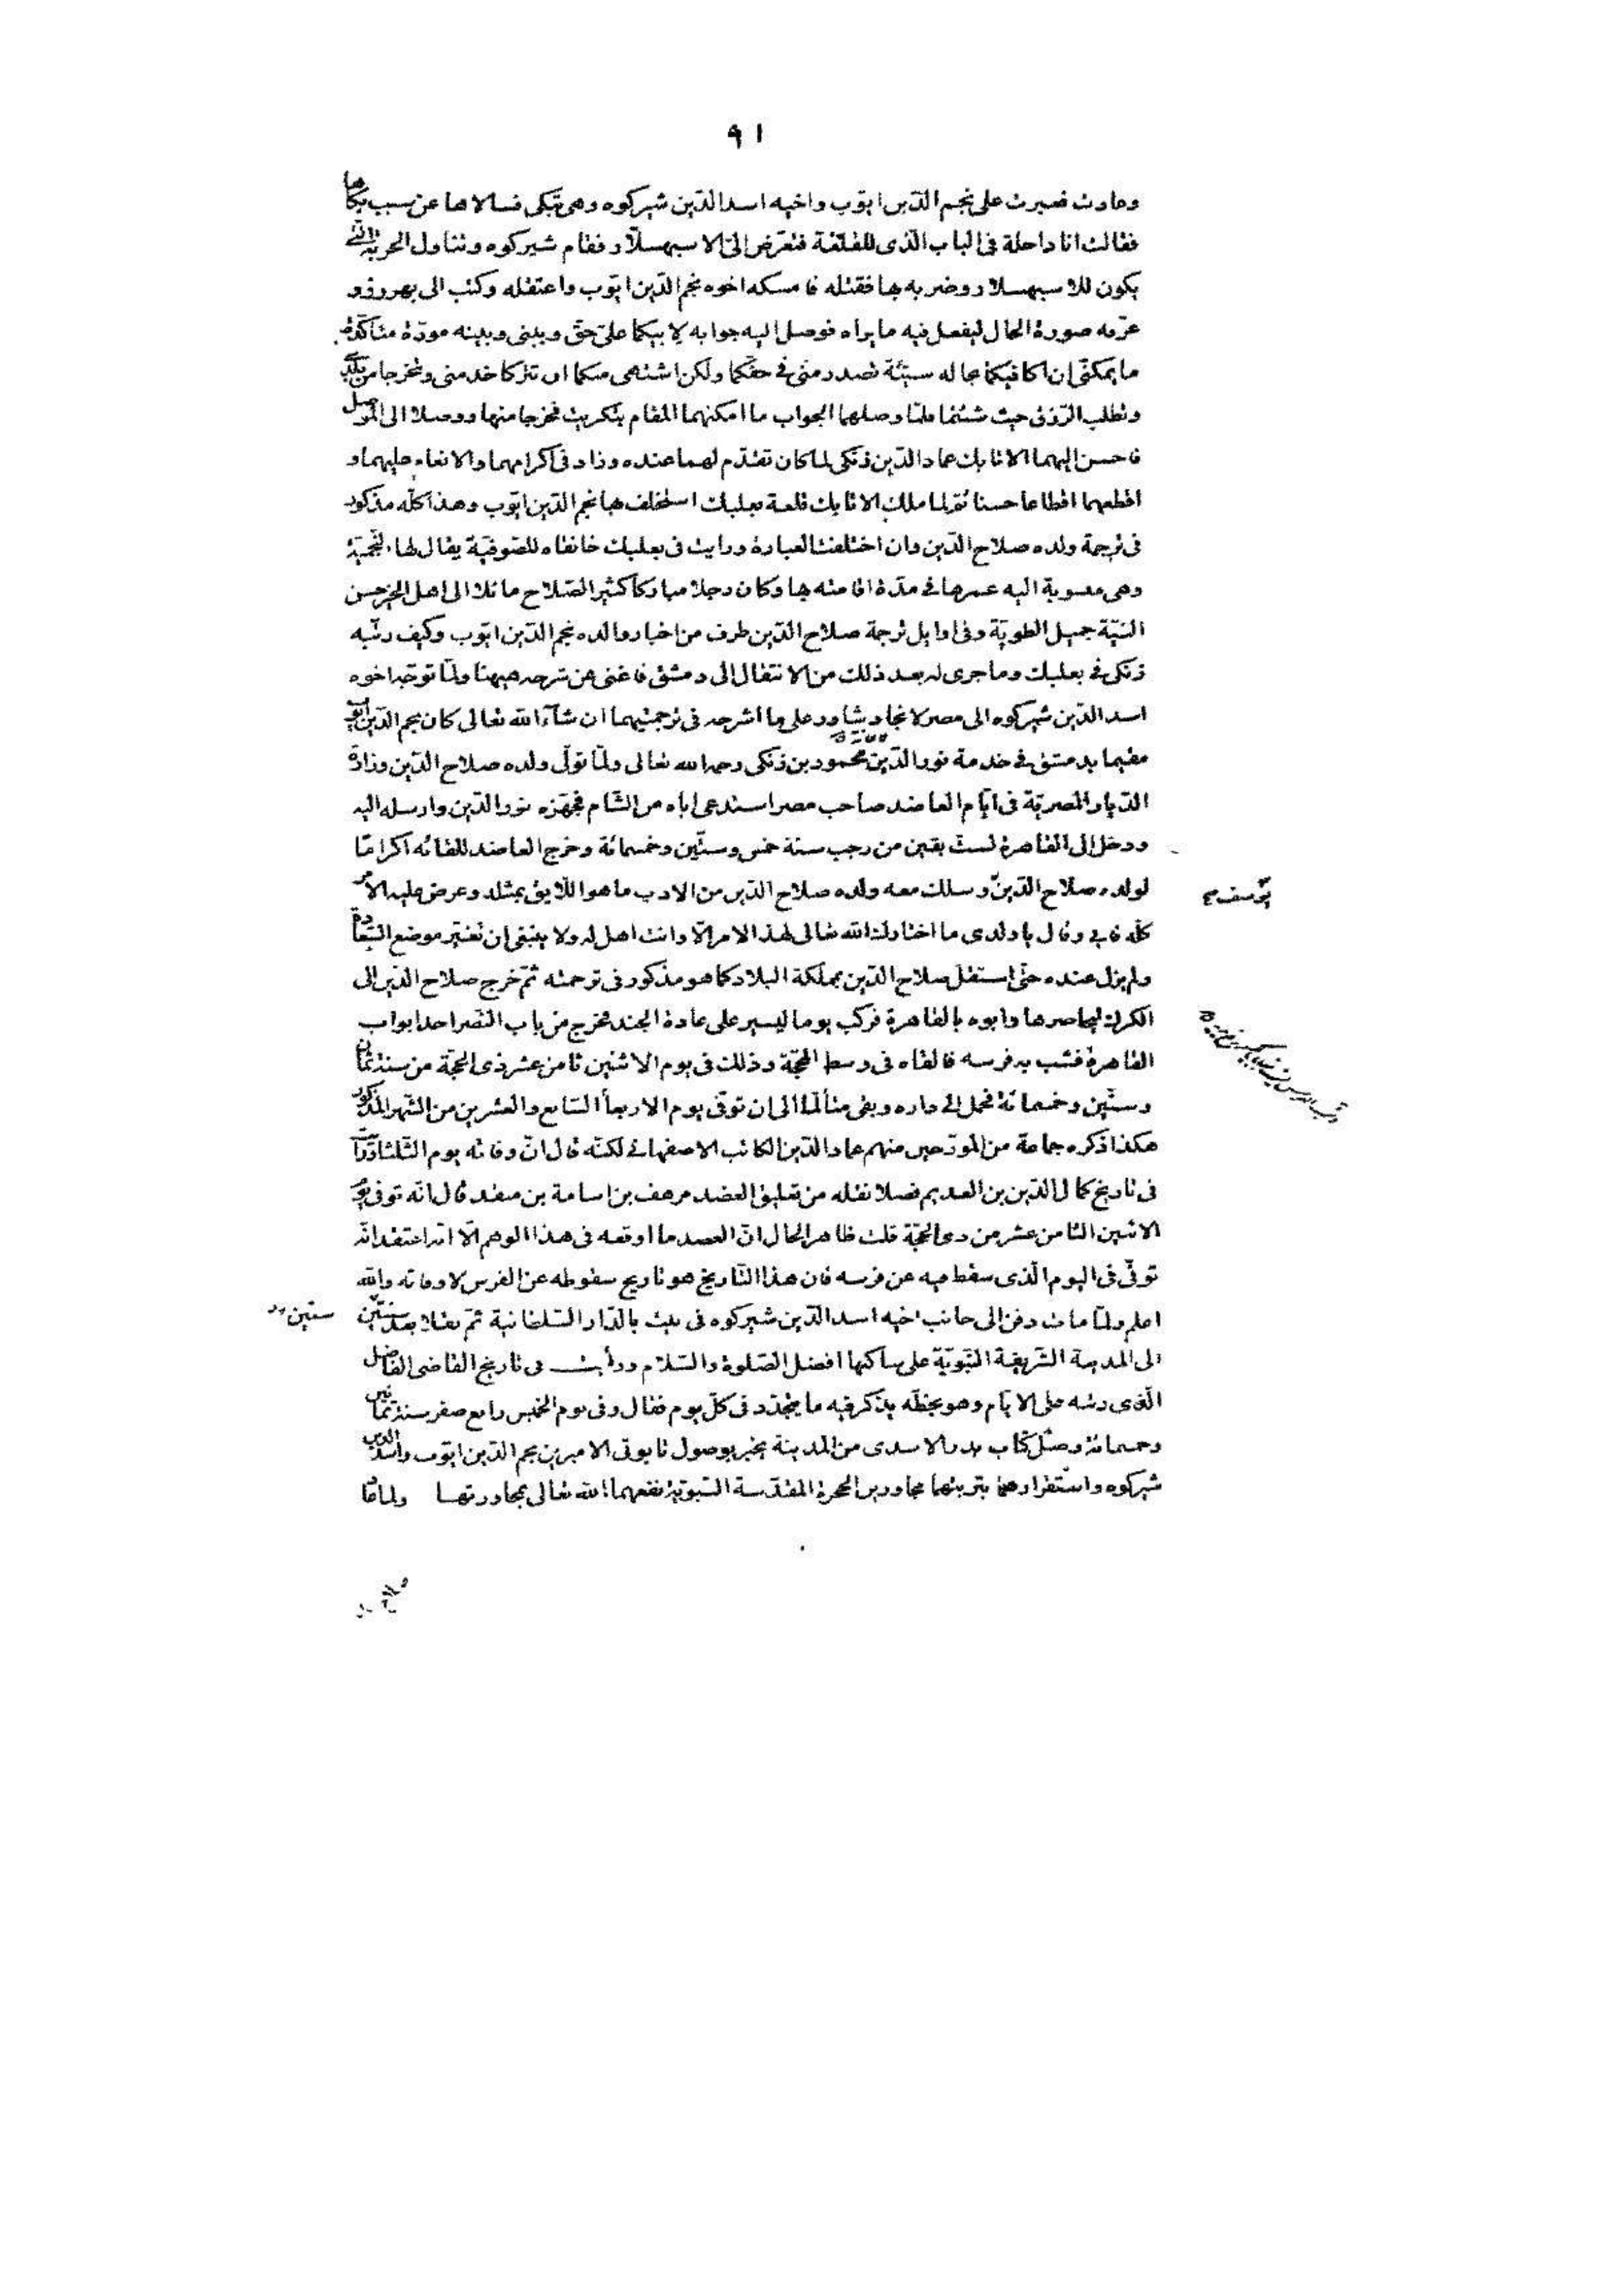 ٩١
وعادت فعبرت على نجم الدّين ايّوب واخيه اسد الدّين شيركوه وهى تبكى فسالاها عن سبب بكاها
فقالت انا داخلة فى الباب الّذى للقلعة فتعرّض الىّ الاسبهسلّار فقام شيركوه وتناول الحربة الّتى
يكون للاسبهسلار وضربه بها فقتله فامسكه اخوه نجم الدّين ايّوب واعتقله وكتب الى بهروز و
عرّفه صورة الحال ليفعل فيه ما يراه فوصل اليه جوابه لابيكما علىّ حقّ وبينى وبينه مودّة متاكّدة
ما يمكننى ان اكافيكما بحالة سيّئة تصدر منى فى حقّكما ولكن اشتهى منكما ان تتركا خدمتى وتخرجا من بلدى
وتطلب الرّزق حيث شئتما فلمّا وصلهما الجواب ما امكنهما المقام بتكريت فخرجا منها ووصلا الى الموصل
فاحسن اليهما الاتابك عماد الدّين زنكى لما كان تقدّم لهما عنده وزاد فى اكرامهما والانعام عليهما و
اقطعهما اقطاعا حسنا ثمّ لما ملك الاتابك قلعة بعلبك استخلف بها نجم الدّين ايّوب وهذا كلّه مذكور
فى ترجمة ولده صلاح الدّين وان اختلفت العبارة ورايت فى بعلبك خانقاه للصّوفيّة يقال لها النّجميّة
وهى منسوبة اليه عمرها فى مدّة اقامته بها وكان رجلا مباركا كثير الصّلاح مائلا الى اهل الخير حسن
النيّة جميل الطويّة وفى اوايل ترجمة صلاح الدّين طرف من اخبار والده نجم الدّين ايّوب وكيف رتّبه
زنكى فى بعلبك وما جرى له بعد ذلك من الانتقال الى دمشق فاغنى عن شرحه هيهنا ولمّا توجّه اخوه
اسد الدّين شيركوه الى مصر لانجاد شاور على ما اشرحه فى ترجمتيهما ان شآء الله تعالى كان نجم الدّين ايّوب
مقيما بدمشق فى خدمة نور الدّين محمود بن زنكى رحمه الله تعالى ولمّا تولّى ولده صلاح الدّين وزارة
الدّيار المصريّة فى ايّام العاضد صاحب مصر استدعى اباه من الشّام فجهّزه نور الدّين وارسله اليه
ودخل الى القاهرة لستّ بقين من رجب سنة خمس وستّين وخمسمائة وخرج العاضد للقائه اكرامًا
لولده صلاح الدّين وسلك معه ولده صلاح الدّين من الادب ما هو اللّايق بمثله وعرض عليه الامر
يوسف صح
كلّه فابى وقال يا ولدى ما اختارك الله تعالى لهذا الامر الّا وانت اهل له ولا ينبغى ان تغيّر موضع السّعادة
ولم يزل عنده حتّى استقلّ صلاح الدّين بمملكة البلاد كما هو مذكور فى ترجمته ثمّ خرج صلاح الدّين الى
الكرك ليحاصرها وابوه بالقاهرة فركب يوما ليسير على عادة الجند فخرج من باب النّصر احد ابواب
القاهرة فشب به فرسه فالقاه فى وسط المحجّة وذلك فى يوم الاثنين ثامن عشر ذى الحجّة من سنة ثمان
وستّين وخمسمائة فحمل الى داره وبقى متألّمًا الى ان توفّى يوم الاربعأ السّابع والعشرين من الشّهر المذكور
هكذا ذكره جماعة من المورّخين منهم عماد الدّين الكاتب الاصفهانى لكنّه قال انّ وفاته يوم الثّلثا ورايت
فى تاريخ كمال الدّين بن العديم فصلا نقله من تعليق العضد مرهف بن اسامة بن منقذ قال انّه توفى يوم
الاثنين الثّامن عشر من ذى الحجّة قلت ظاهر الحال انّ العضد ما اوقعه فى هذا الوهم الّا انّه اعتقد انّه
توفّى فى اليوم الّذى سقط فيه عن فرسه فان هذا التّاريخ هو تاريخ سقوطه عن الفرس لا وفاته والله
اعلم ولمّا مات دفن الى جانب اخيه اسد الدّين شيركوه فى بيت بالدّار السّلطانية ثمّ نقلا بعد سنتين
سنتين
الى المدينة الشّريفة النّبويّة على ساكنها افضل الصّلوة والسّلام ورأيت فى تاريخ القاضى الفاضل
الّذى رتّبه على الايّام وهو بخطّه يذكر فيه ما يتجدّد فى كلّ يوم فقال وفى يوم الخميس رابع صفر سنة ثمانين
وخمسمائة وصل كتاب بدر الاسدى من المدينة يخبر بوصول تابوتى الاميرين نجم الدّين ايّوب واسد الدّين
شيركوه واستقرارهما بتربتهما مجاورين الحجرة المقدّسة النّبويّة نفعهما الله تعالى بمجاورتها ولما